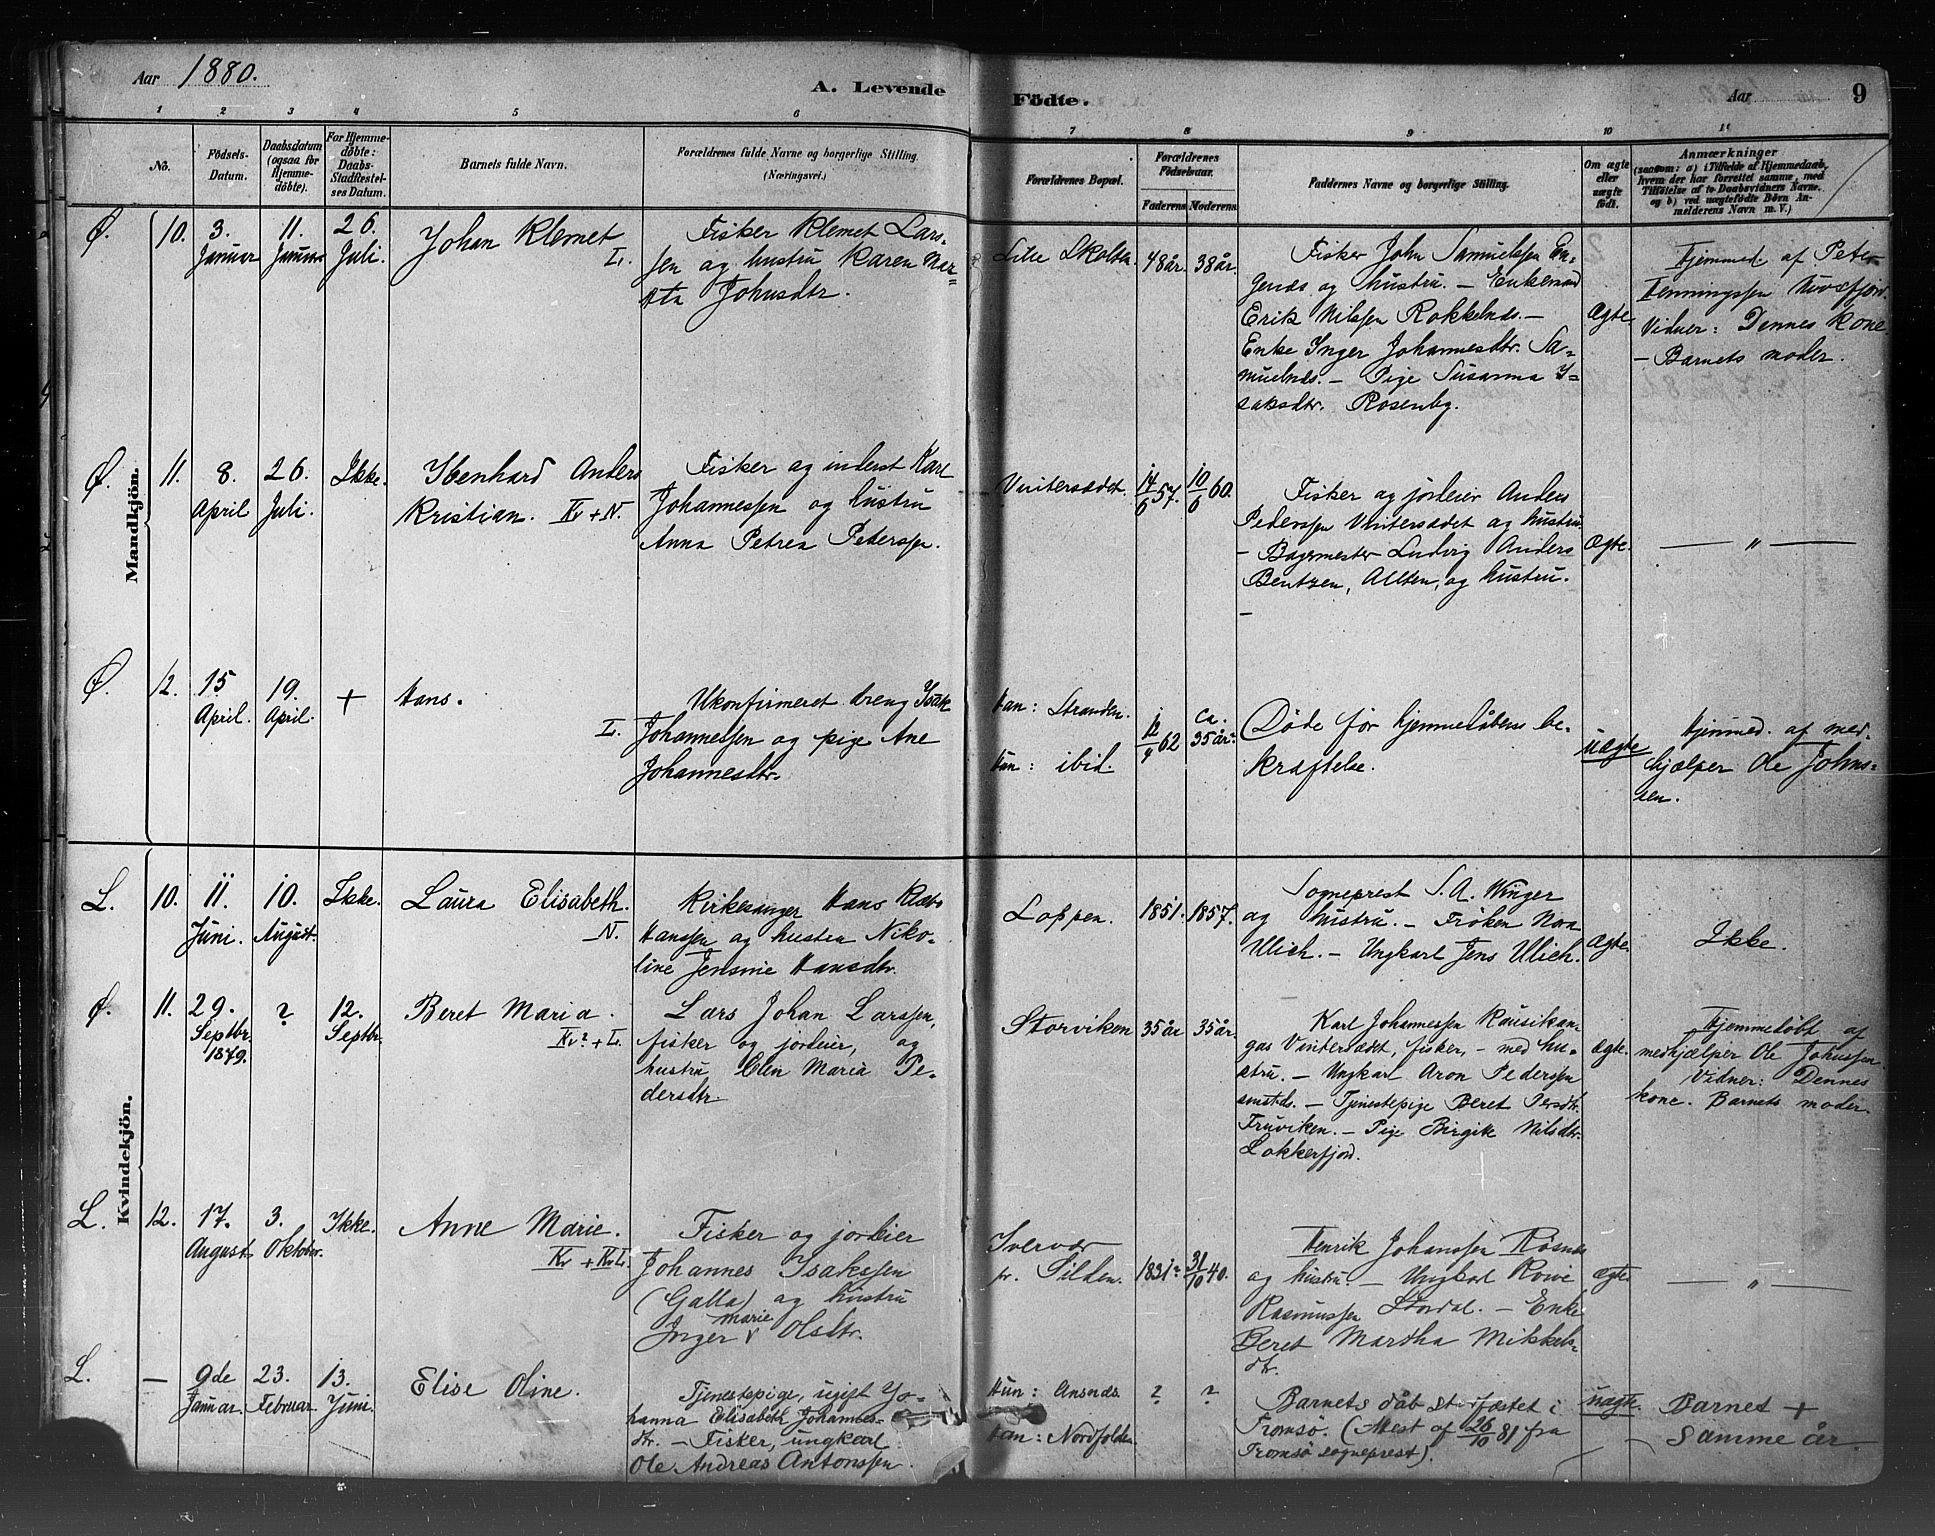 Aar 1880.
A. Levende Födte.
Aar
9
1 2 3 4 5 6 7 8 9 10 11
No.
Födsels-Datum.
Daabsdatum (ogsaa for Hjemmedöbte).
For Hjemmedöbte: Daabs-Stadfæstelses Datum.
Barnets fulde Navn.
Forældrenes fulde Navne og borgerlige Stilling.
(Næringsvei.)
Forældrenes Bopæl.
Forældrenes Födselsaar.
Faderens. Moderens.
Faddernes Navne og borgerlige Stilling.
Om ægte eller uægte födt.
Anmærkninger
(saasom: a) i Tilfælde af Hjemmedaab, hvem der har forrettet samme, med Tilföielse af to Daabsvidners Navne, og b) ved uægtefödte Börn Anmelderens Navn m. V.)
Mandkjön.
Ø. 10. 3. Januar 11. Januar 26. Juli.
Johan Klemet
L.
Fisker Klemet Lars-
sen og hustru Karen Mar-
Johnsdtr.
Lille Skolten. 48 år. 38 år.
Fisker John Samuelssen
og hustru. — Enkemand
Erik Nilssen Rokkelnds. —
Enke Inger Johannesdtr. Sa-
muelnds. — Pige Susanna I-
saksdtr. Rosenbg.
Ægte
Hjemmed. af Peter
Henningssen
Vidner: Dennes kone
— Barnets moder.
Ø. 11. 8. April 26. Juli. Ikke.
Anders
Kristian. Kv + N.
Fisker og inderst Karl
Johannessen og hustru
Anna Petrea Peterssen.
Vintersædet. 14/6 57. 10/6 60.
Fisker og jordeier Anders
Pederssen Vintersædet og hustru
— Bagermester Ludvig Anders
Bentzen, Alten, og hustru.
—
Ægte.
— " —
Ø. 12. 15 April. 19. April. +
Hans.
L.
Ukonfirmeret dreng Isak
Johannessen og pige Ane
Johannesdtr.
Han: Stranden.
Hun: ibid.
12/4 62 ca. 35 år.
Døde før hjemmedåbens be-
kræftelse.
uægte
Hjemmed. af med-
hjælper Ole Johns-
sen.
Kvindekjön.
L. 10. 11. Juni. 10. August. Ikke.
Laura Elisabeth.
N.
Kirkesanger Hans
Hanssen og hustru Niko-
line Jensine Hansdtr.
Loppen. 1851. 1857.
Sogneprest S. A. Winger
og hustru. — Frøken
Ulich. — Ungkarl Jens Ulich.
Ægte.
Ikke.
Ø. 11. 29. Septbr. 1879. ? 12. Septbr.
Beret Maria.
Kv? + L.
Lars Johan Larssen,
fisker og jordeier, og
hustru Elen Maria Pe-
dersdtr.
Storviken 35 år 35 år.
Karl Johannessen Rausikan-
gas Vintersædet, fisker, — med hu-
stru. — Ungkarl Aron Pederssen
smsteds. — Tjenestepige Beret Persdtr.
Fruviken. — Pige Birgite Nilsdtr.
Lokkerfjord.
ægte.
Hjemmedøbt af
medhjælper Ole Johnssen.
Vidner: Dennes
kone. Barnets moder.
L. 12. 17. August 3. Oktober. Ikke.
Anne Marie.
Kv + Kv L.
Fisker og jordeier
Johannes Isakssen
(Galla) og hustru
Inger Marie Olsdtr.
Sverver
pr. Silden. 1831? 31/10 40.
Henrik Johanssen Røsnes
og hustru — Ungkarl
Rasmussen Stordal. — Enke
Beret Martha Mikkels-
dtr.
ægte.
— " —
L. — 9de Januar. 23. Februar 13. Juni.
Elise Oline.
Tjenestepige, ugift Jo-
hanna Elisabeth Johannes-
dtr. — Fisker, ungkarl
Ole Andreas Antonssen.
Hun: Ansnds.
Han: Nordfolden
? ?
Barnets dåb stadfæstet i
Tromsø. (Attest af 26/10 81 fra
Tromsø sogneprest).
uægte.
Barnet +
samme år.